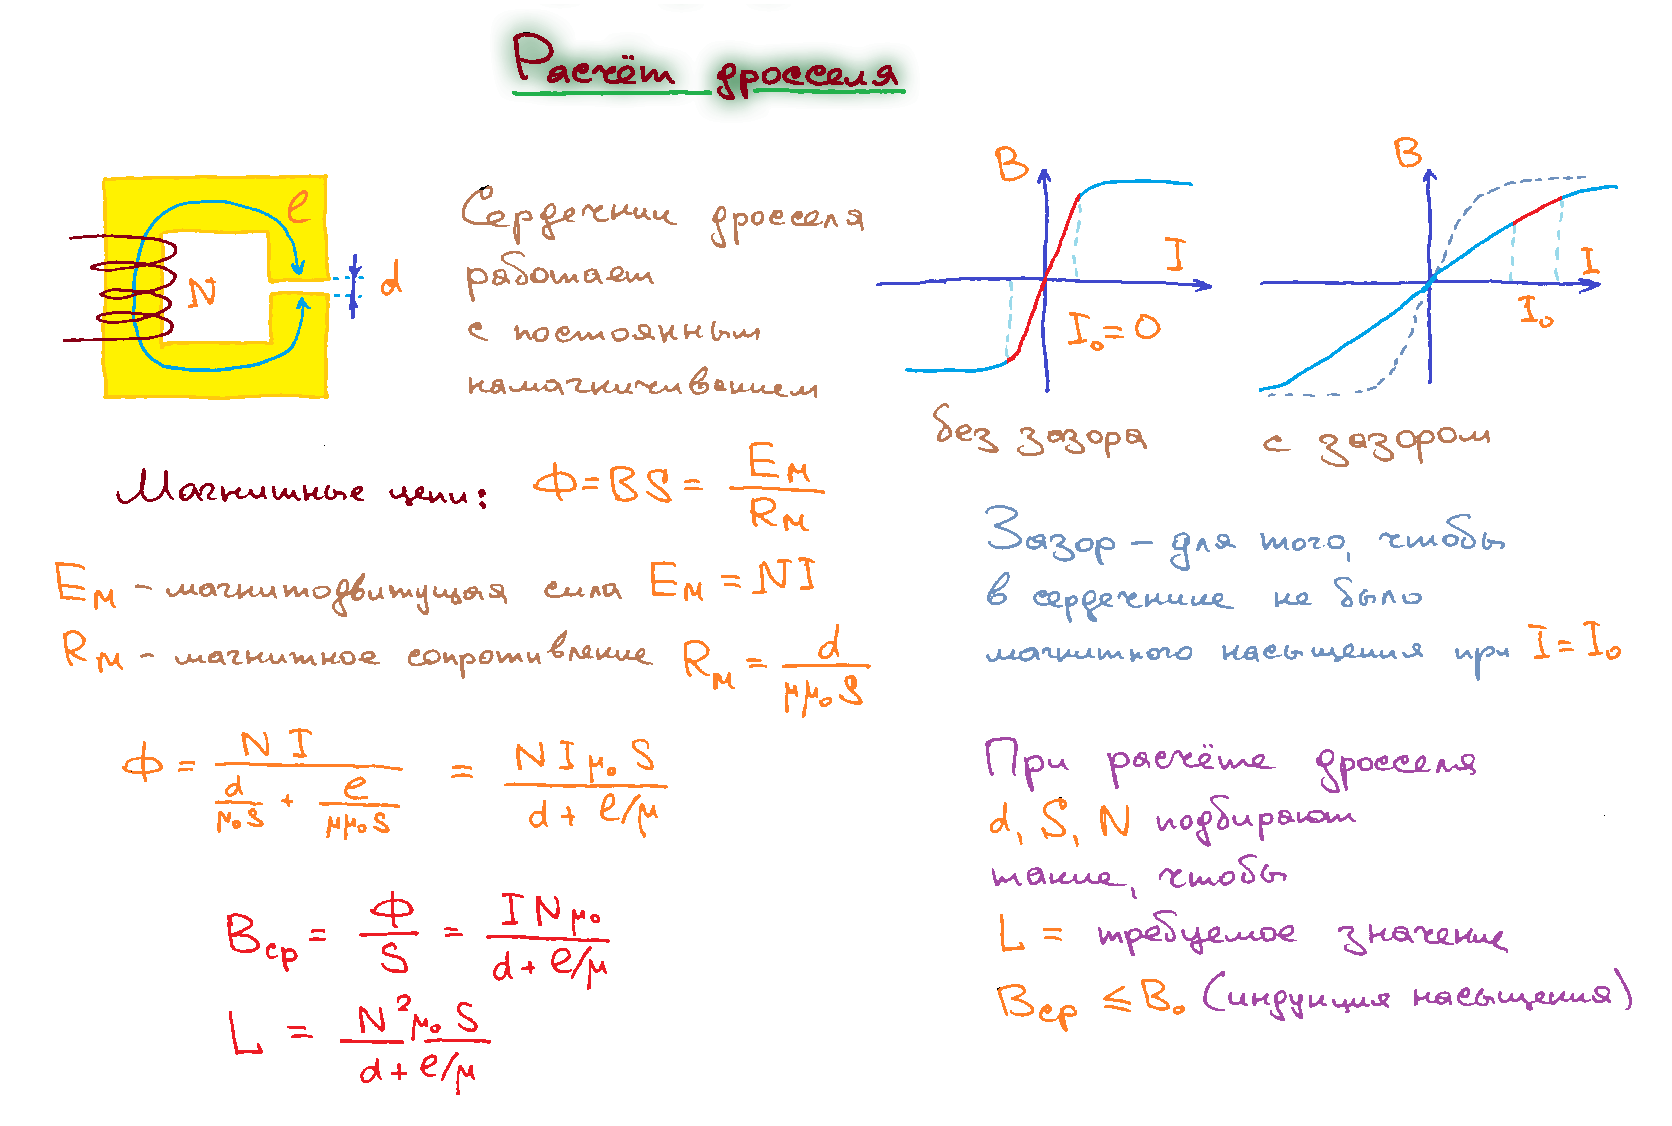 Расчёт дросселя
l
N
d
Сердечник дросселя
работает
с постоянным
намагничиванием
B
I
I₀ = 0
без зазора
B
I
I₀
с зазором
Магнитные цепи: Ф = BS = Eм / Rм
Eм – магнитодвижущая сила Eм = NI
Rм – магнитное сопротивление Rм = d / μμ₀S
Ф = NI / (d/μ₀S + l/μμ₀S) = NIμ₀S / (d + l/μ)
Bср = Ф / S = INμ₀ / (d + l/μ)
L = N²μ₀S / (d + l/μ)
Зазор – для того, чтобы
в сердечнике не было
магнитного насыщения при I = I₀
При расчёте дросселя
d, S, N подбирают
такие, чтобы
L = требуемое значение
Bср ≤ B₀ (индукция насыщения)